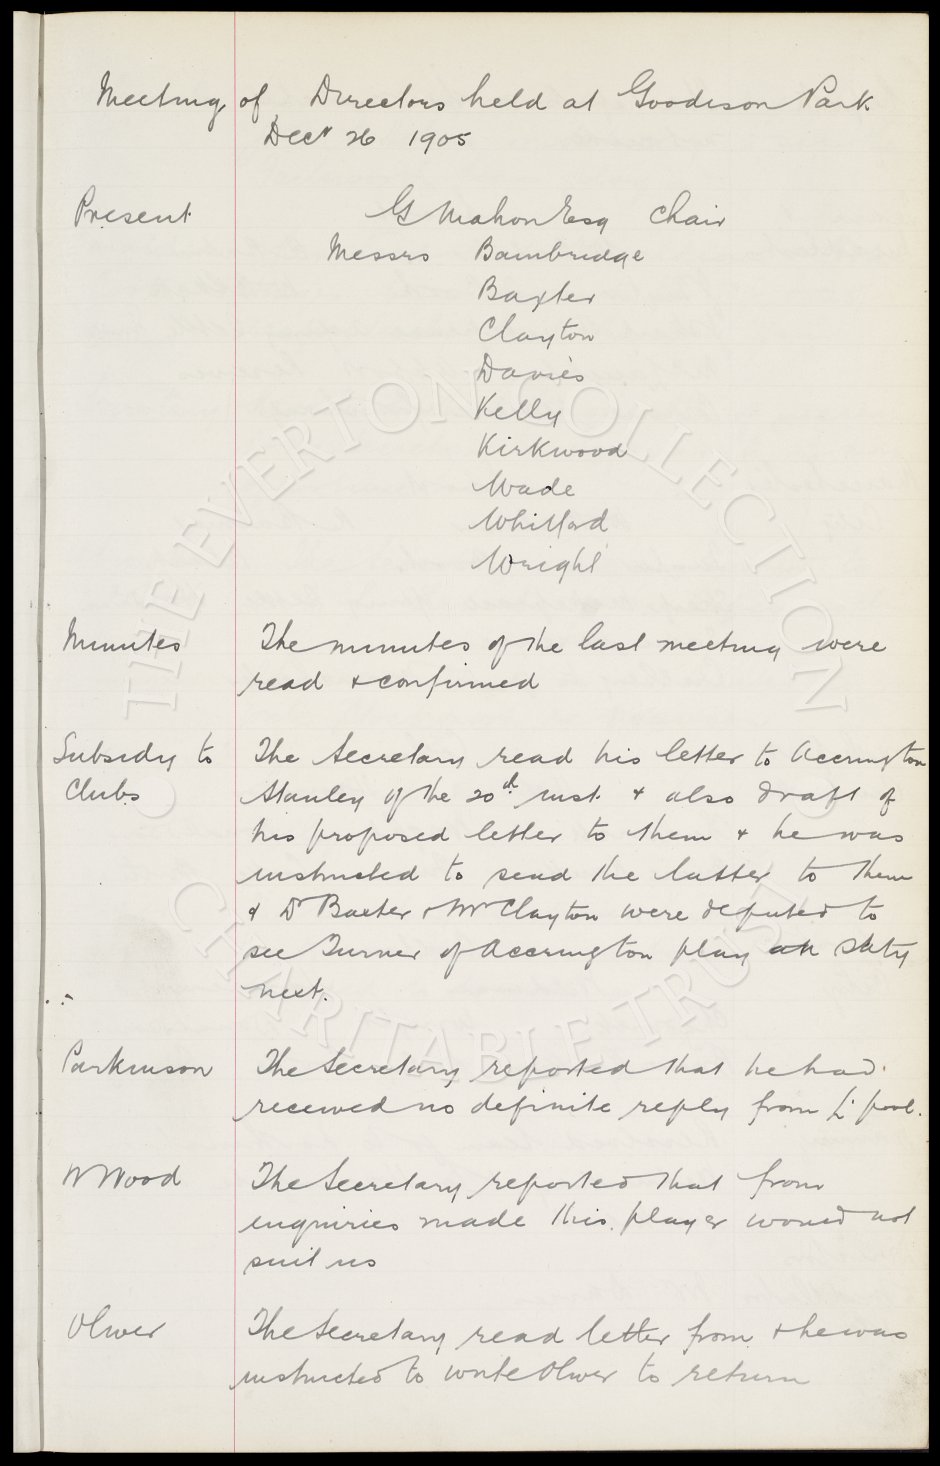 Meeting of Directors held at Goodison Park
Decr 26 1905
Present G Mahon Esq Chair
Messrs Bainbridge
Baxter
Clayton
Davies
Kelly
Kirkwood
Wade
Whitford
Wright
Minutes The minutes of the last meeting were
read & confirmed
Subsidy to The Secretary read his letter to Accrington
Clubs Stanley of the 20th inst. & also draft of
his proposed letter to them & he was
instructed to send the latter to them
& Dr Baxter & Mr Clayton were deputed to
see Turner of Accrington play on Saty
next.
Parkinson The Secretary reported that he had
received no definite reply from L'pool.
W Wood The Secretary reported that from
inquiries made this player would not
suit us
Oliver The Secretary read letter from & he was
instructed to write Oliver to return
© THE EVERTON COLLECTION CHARITABLE TRUST